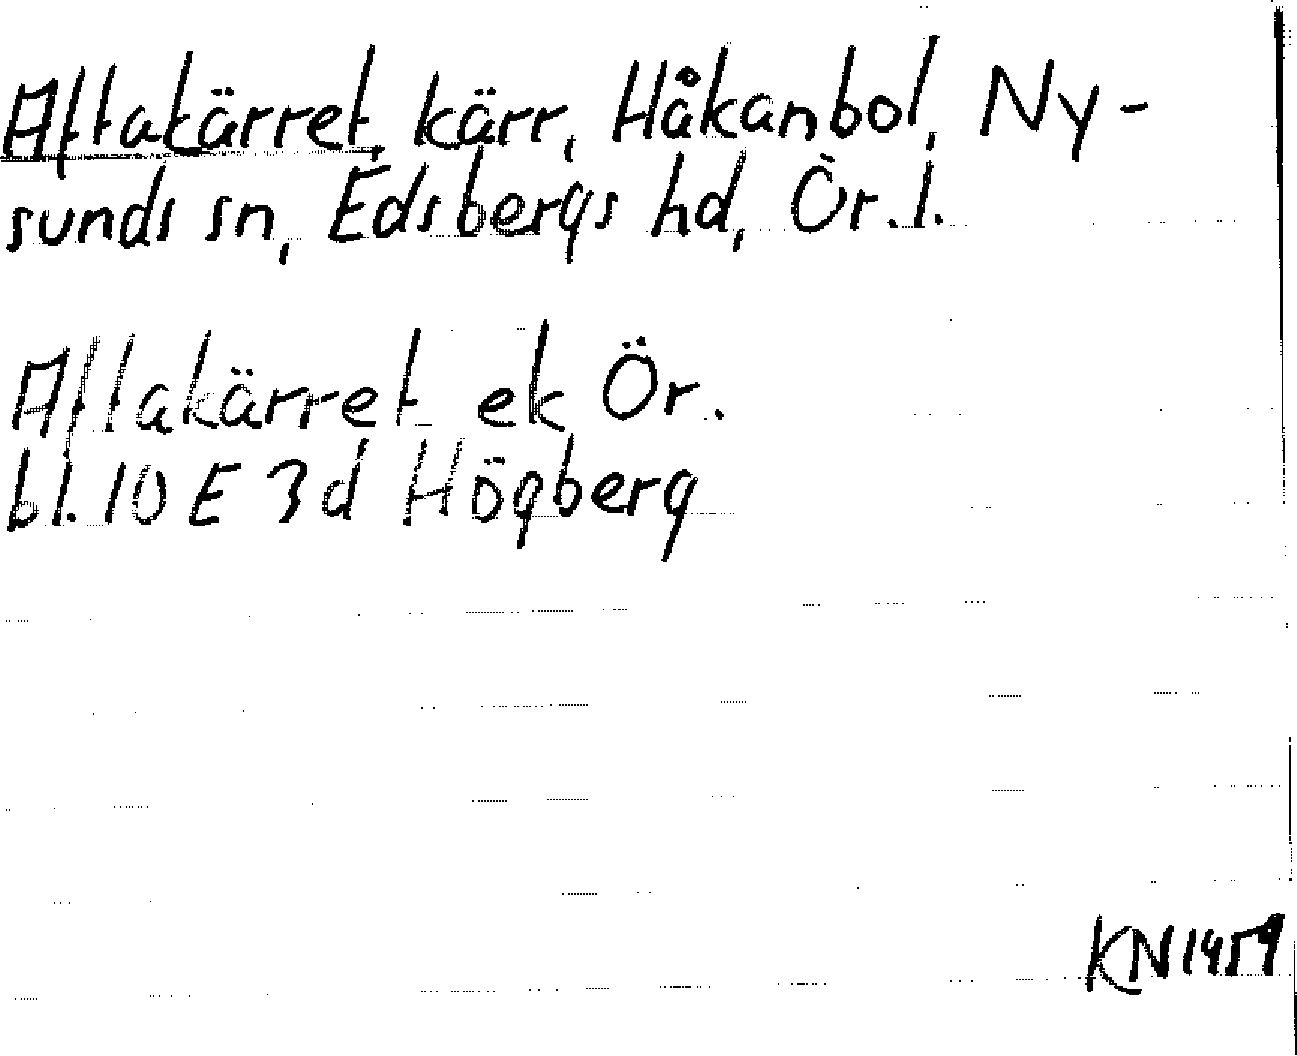 Aftakärret, kärr, Håkanbol, Ny-
sunds sn, Edsbergs hd, Ör. l.
Aftakärret ek Ör.
bl. 10 E 3d Högberg
KN 1959